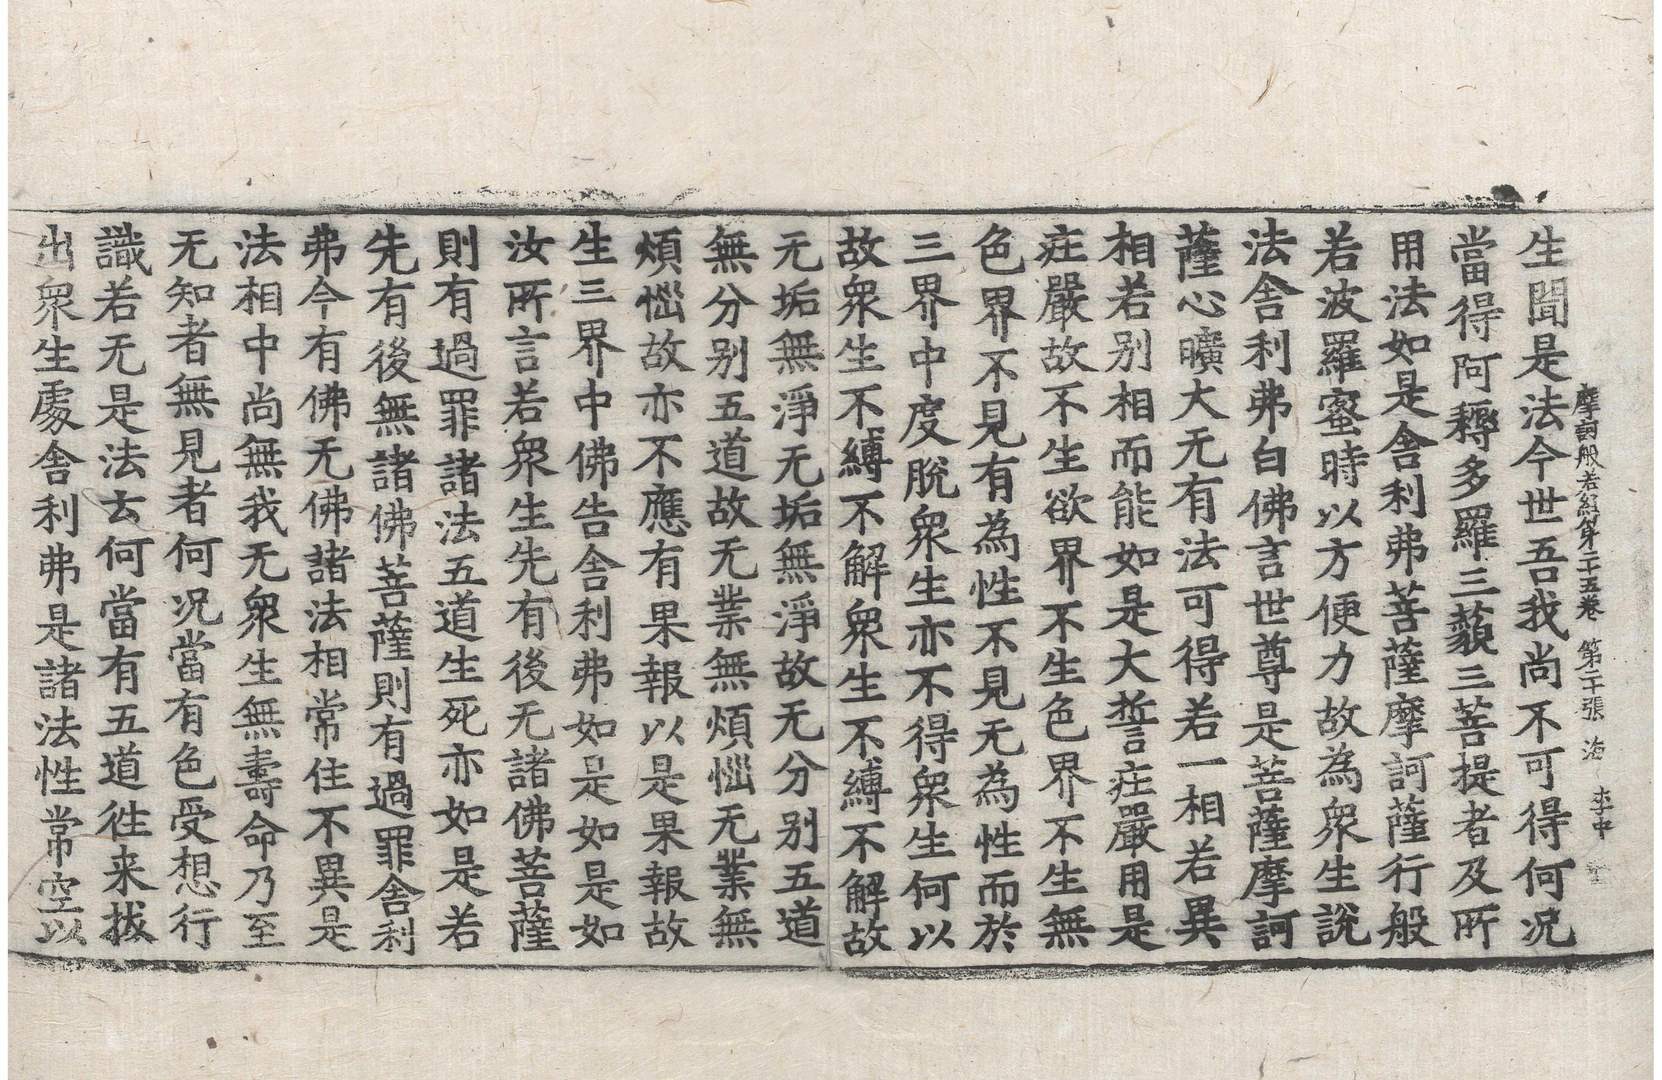 摩訶般若經第二十五卷　第二十張　海　李中
生聞是法今世吾我尚不可得何况
當得阿耨多羅三藐三菩提者及所
用法如是舍利弗菩薩摩訶薩行般
若波羅蜜時以方便力故為衆生說
法舍利弗白佛言世尊是菩薩摩訶
薩心曠大无有法可得若一相若異
相若別相而能如是大誓莊嚴用是
莊嚴故不生欲界不生色界不生無
色界不見有為性不見无為性而於
三界中度脫衆生亦不得衆生何以
故衆生不縛不解衆生不縛不解故
无垢無淨无垢無淨故无分別五道
無分別五道故无業無煩惱无業無
煩惱故亦不應有果報以是果報故
生三界中佛告舍利弗如是如是如
汝所言若衆生先有後无諸佛菩薩
則有過罪諸法五道生死亦如是若
先有後無諸佛菩薩則有過罪舍利
弗今有佛无佛諸法相常住不異是
法相中尚無我无衆生無壽命乃至
无知者無見者何况當有色受想行
識若无是法云何當有五道往来拔
出衆生處舍利弗是諸法性常空以